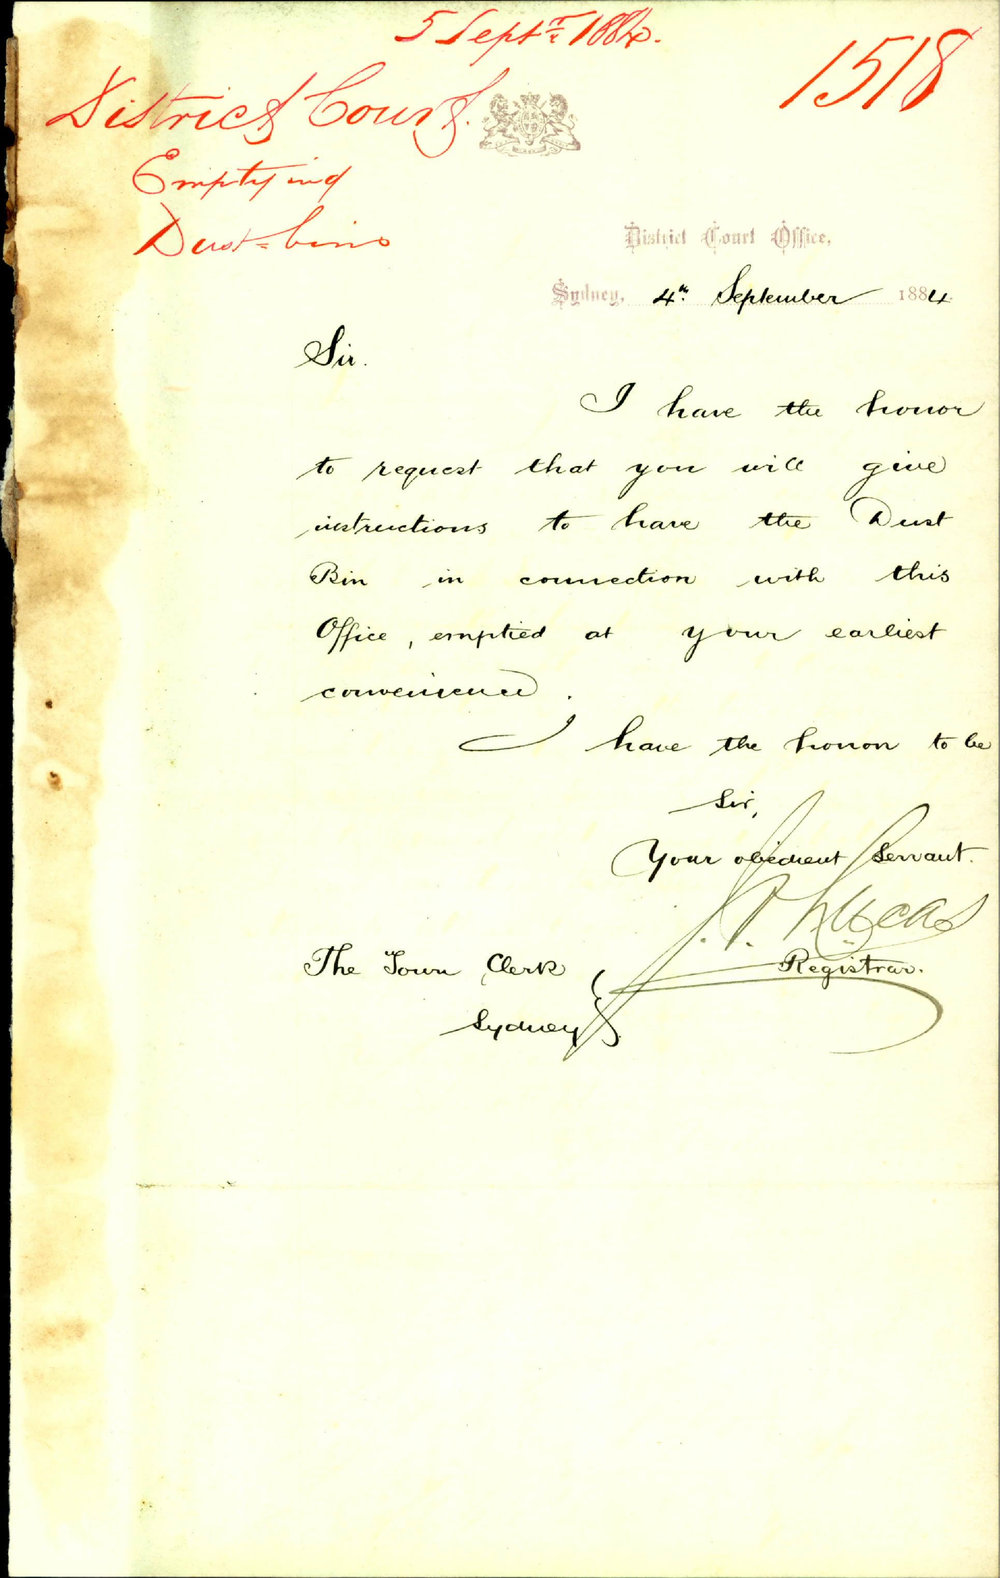 5 Septr. 1884.
1518
District Court.
Emptying
Dust-bins
District Court Office,
Sydney, 4th September 1884.
Sir.
I have the honor
to request that you will give
instructions to have the Dust
Bin in connection with this
Office, emptied at your earliest
convenience.
I have the honor to be
Sir,
Your obedient Servant.
Lucas
Registrar.
The Town Clerk
Sydney